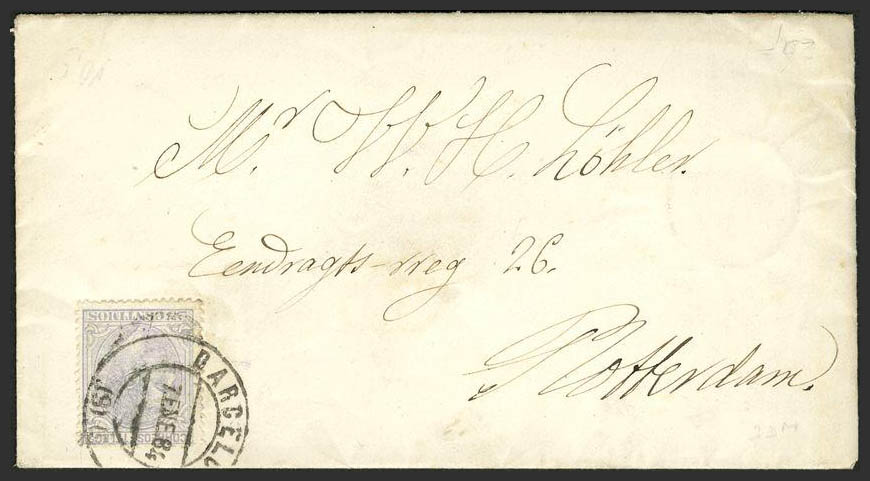 Mr. W. H. Löhler.
Eendragts-weg 26.
Rotterdam.
CENTIMOS
BARCELO
7 ENE 84
(5)